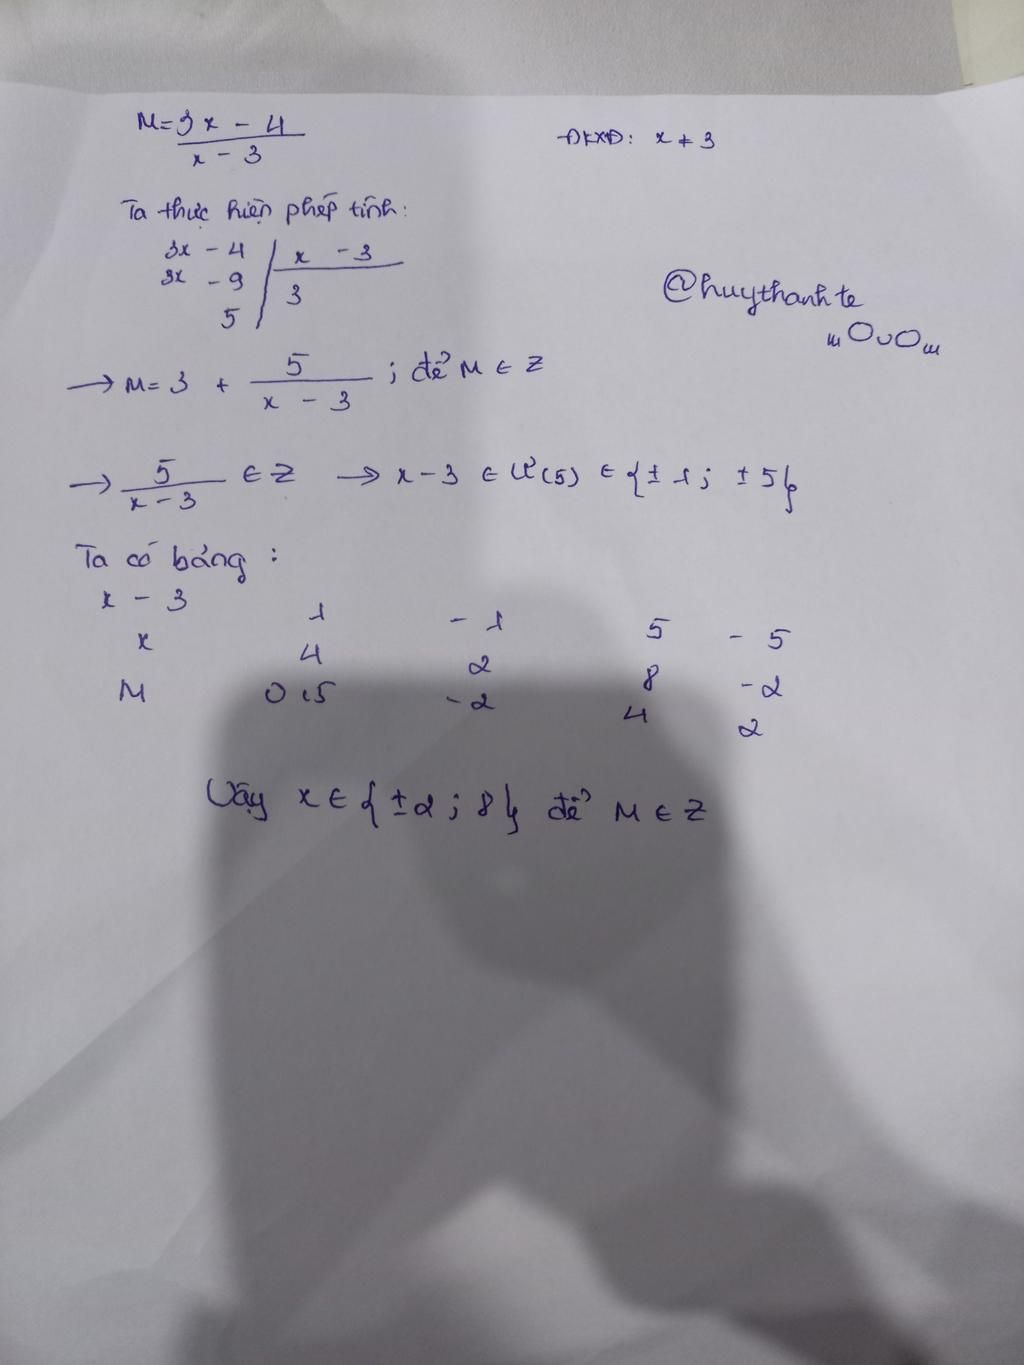 M = 3x - 4
x - 3
ĐKXĐ: x ≠ 3
Ta thực hiện phép tính:
3x - 4 | x - 3
3x - 9 | 3
5
@huythanhte
→ M = 3 + 5 ; để M ∈ Z
x - 3
→ 5 ∈ Z → x - 3 ∈ Ư(5) ∈ {±1; ±5}
x - 3
Ta có bảng:
x - 3 1 -1 5 -5
x 4 2 8 -2
M 0,5 -2 4 2
Vậy x ∈ {±2; 8} để M ∈ Z